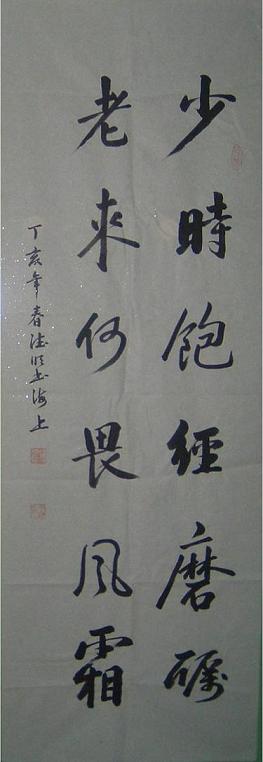 少時飽經磨礪
老來何畏風霜
丁亥年春德明書於海上